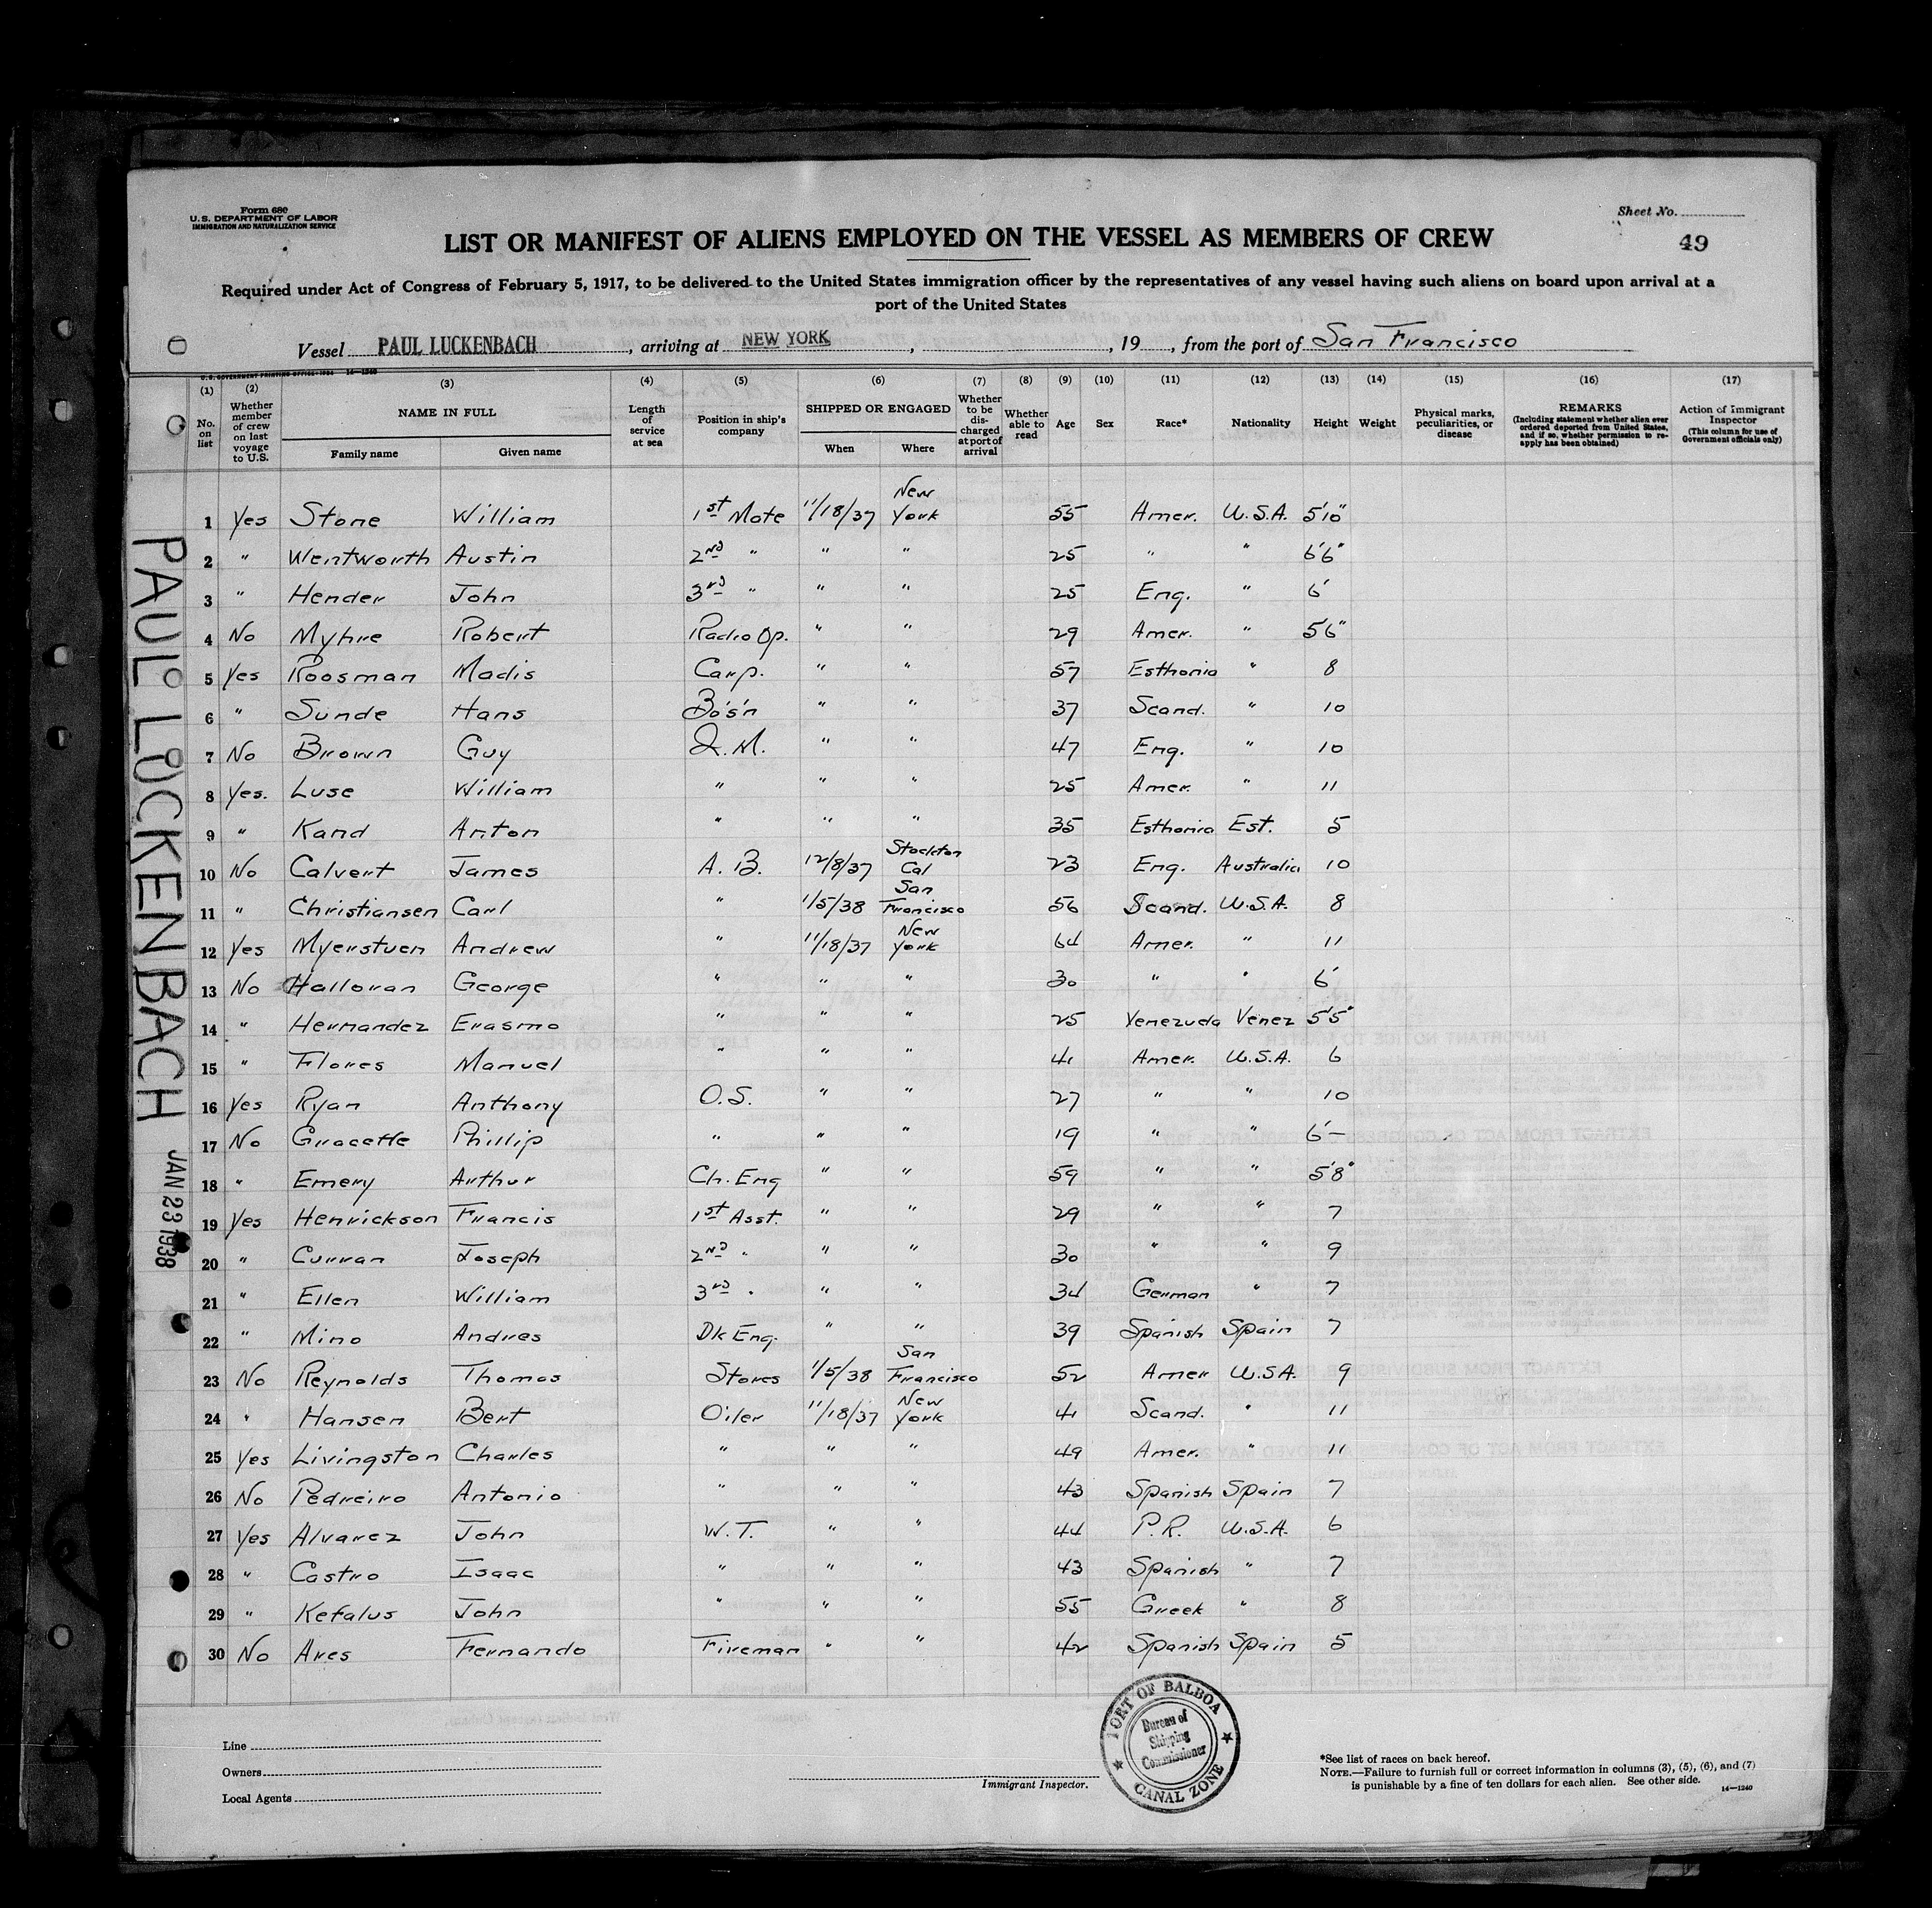 Form 680
U. S. DEPARTMENT OF LABOR
IMMIGRATION AND NATURALIZATION SERVICE
Sheet No.
49
LIST OR MANIFEST OF ALIENS EMPLOYED ON THE VESSEL AS MEMBERS OF CREW
Required under Act of Congress of February 5, 1917, to be delivered to the United States immigration officer by the representatives of any vessel having such aliens on board upon arrival at a
port of the United States
Vessel PAUL LUCKENBACH, arriving at NEW YORK, , 19 , from the port of San Francisco
U. S. GOVERNMENT PRINTING OFFICE: 1934 14—1240
(1) (2) (3) (4) (5) (6) (7) (8) (9) (10) (11) (12) (13) (14) (15) (16) (17)
No. on list
Whether member of crew on last voyage to U.S.
NAME IN FULL
Family name
Given name
Length of service at sea
Position in ship's company
SHIPPED OR ENGAGED
When
Where
Whether to be discharged at port of arrival
Whether able to read
Age
Sex
Race*
Nationality
Height
Weight
Physical marks, peculiarities, or disease
REMARKS
(Including statement whether alien ever ordered deported from United States, and if so, whether permission to reapply has been obtained)
Action of Immigrant Inspector
(This column for use of Government officials only)
1 Yes Stone William 1st Mate 11/18/37 New York 55 Amer. U.S.A. 5'10"
2 " Wentworth Austin 2nd " " " 25 " " 6'6"
3 " Hender John 3rd " " " 25 Eng. " 6'
4 No Myhre Robert Radio Op. " " 29 Amer. " 5'6"
5 Yes Roosman Madis Carp. " " 57 Esthonia " 8
6 " Sunde Hans Bo's'n " " 37 Scand. " 10
7 No Brown Guy Q.M. " " 47 Eng. " 10
8 Yes. Luse William " " " 25 Amer. " 11
9 " Kand Anton " " " 35 Esthonia Est. 5
10 No Calvert James A. B. 12/8/37 Stockton Cal 23 Eng. Australia 10
11 " Christiansen Carl " 1/5/38 San Francisco 56 Scand. U.S.A. 8
12 Yes Myerstuen Andrew " 11/18/37 New York 64 Amer. " 11
13 No Halloran George " " " 30 " " 6'
14 " Hernandez Erasmo " " " 25 Venezuela Venez 5'5"
15 " Flores Manuel " " " 41 Amer. U.S.A. 6
16 Yes Ryan Anthony O.S. " " 27 " " 10
17 No Gracette Phillip " " " 19 " " 6'—
18 " Emery Arthur Ch. Eng " " 59 " " 5'8"
19 Yes Henrickson Francis 1st Asst. " " 29 " " 7
20 " Curran Joseph 2nd " " " 30 " " 9
21 " Ellen William 3rd " " " 34 German " 7
22 " Mino Andres Dk Eng. " " 39 Spanish Spain 7
23 No Reynolds Thomas Stores 1/5/38 San Francisco 52 Amer U.S.A. 9
24 " Hansen Bert Oiler 11/18/37 New York 41 Scand. " 11
25 Yes Livingston Charles " " " 49 Amer. " 11
26 No Pedreiro Antonio " " " 43 Spanish Spain 7
27 Yes Alvarez John W.T. " " 44 P.R. U.S.A. 6
28 " Castro Isaac " " " 43 Spanish " 7
29 " Kefalus John " " " 55 Greek " 8
30 No Ares Fernando Fireman " " 42 Spanish Spain 5
PAUL LUCKENBACH
JAN 23 1938
Line
Owners
Local Agents
Immigrant Inspector.
PORT OF BALBOA
Bureau of
Shipping
Commissioner
CANAL ZONE
*See list of races on back hereof.
NOTE.—Failure to furnish full or correct information in columns (3), (5), (6), and (7)
is punishable by a fine of ten dollars for each alien. See other side.
14—1240